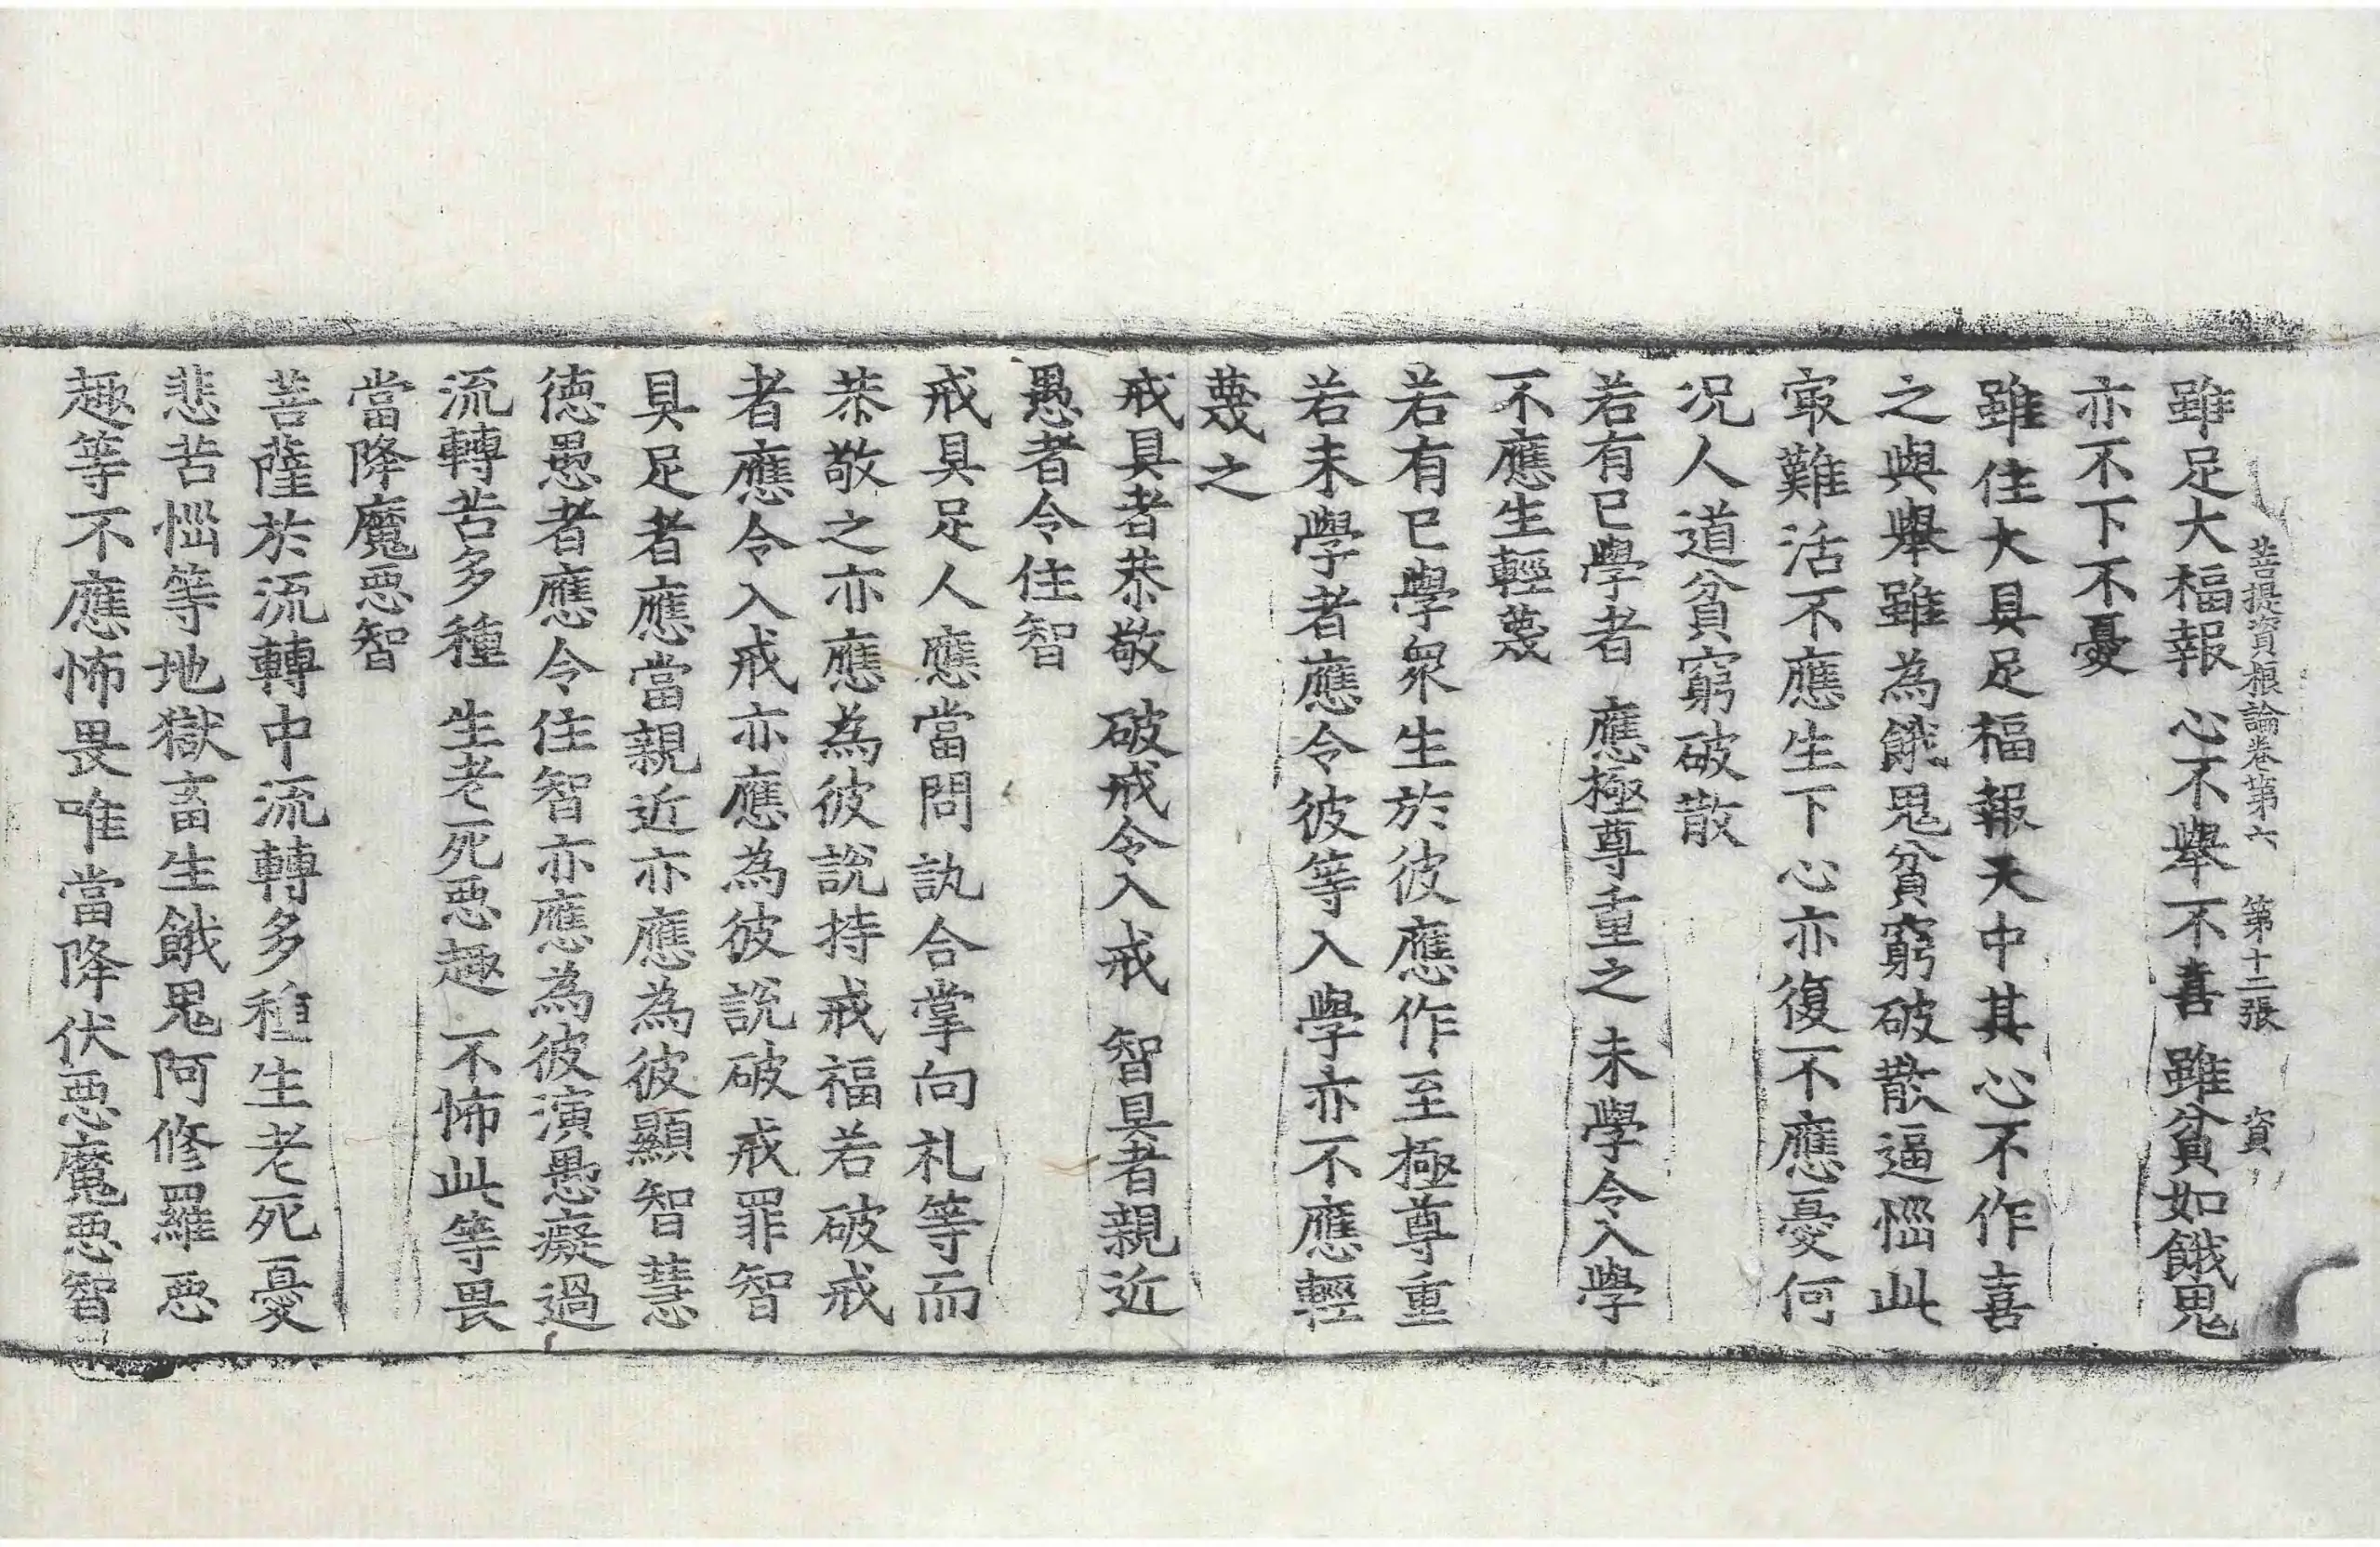 菩提資粮論卷第六 第十二張 資
雖足大福報 心不舉不喜 雖貧如餓鬼
亦不下不憂
雖住大具足福報天中其心不作喜
之與舉雖為餓鬼貧窮破散逼惱此
㝡難活不應生下心亦復不應憂何
况人道貧窮破散
若有已學者 應極尊重之 未學令入學
不應生輕蔑
若有已學衆生於彼應作至極尊重
若未學者應令彼等入學亦不應輕
蔑之
戒具者恭敬 破戒令入戒 智具者親近
愚者令住智
戒具足人應當問訊合掌向礼等而
恭敬之亦應為彼說持戒福若破戒
者應令入戒亦應為彼說破戒罪智
具足者應當親近亦應為彼顯智慧
德愚者應令住智亦應為彼演愚癡過
流轉苦多種 生老死惡趣 不怖此等畏
當降魔惡智
菩薩於流轉中流轉多種生老死憂
悲苦惱等地獄畜生餓鬼阿修羅惡
趣等不應怖畏唯當降伏惡魔惡智